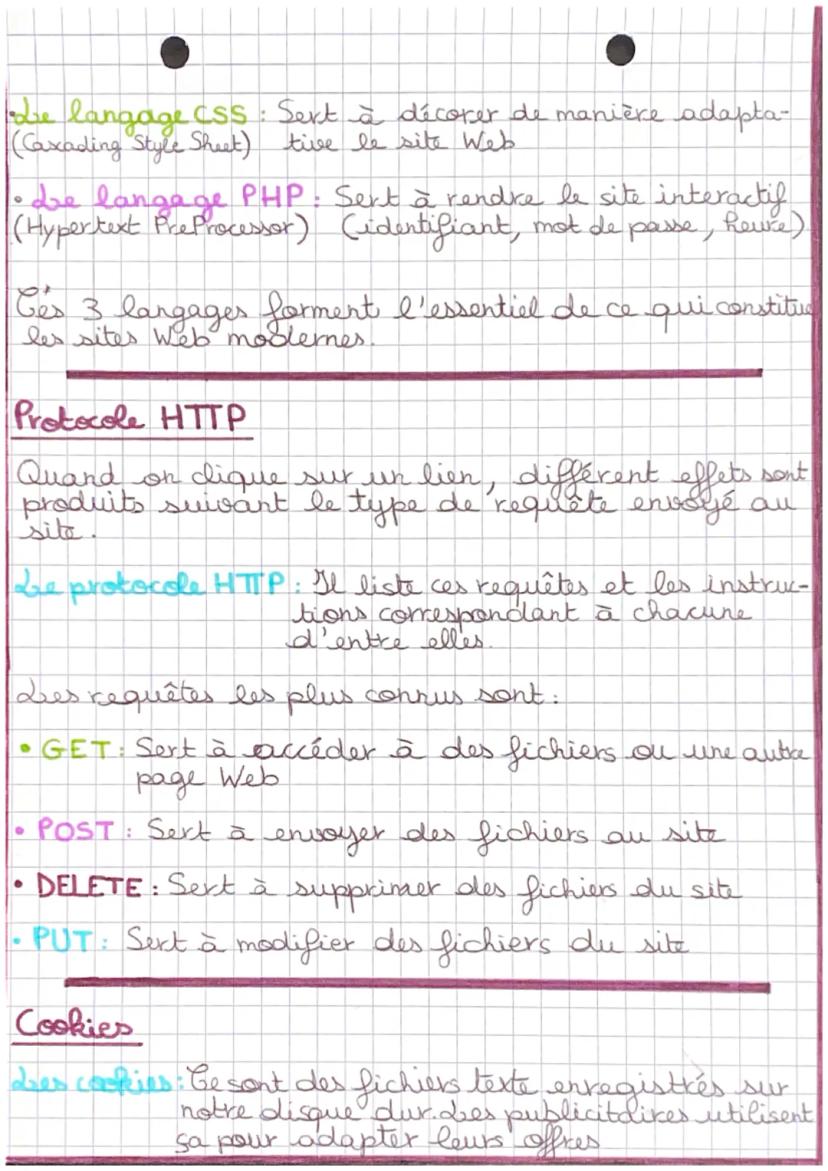 • Le langage CSS : Sert à décorer de manière adapta-
(Caxading Style Sheet) tive le site Web
• Le langage PHP : Sert à rendre le site interactif
(Hypertext PreProcessor) (identifiant, mot de passe, heure)
Ces 3 langages forment l'essentiel de ce qui constitue
les sites Web modernes.
Protocole HTTP
Quand on clique sur un lien, différent effets sont
produits suivant le type de requête envoyé au
site.
Le protocole HTTP : Il liste ces requêtes et les instruc-
tions correspondant à chacune
d'entre elles.
Les requêtes les plus connus sont :
• GET : Sert à accéder à des fichiers ou une autre
page Web
• POST : Sert à envoyer des fichiers au site
• DELETE : Sert à supprimer des fichiers du site
• PUT : Sert à modifier des fichiers du site
Cookies
Les cookies : Ce sont des fichiers texte enregistrés sur
notre disque dur. Les publicitaires utilisent
sa pour adapter leurs offres